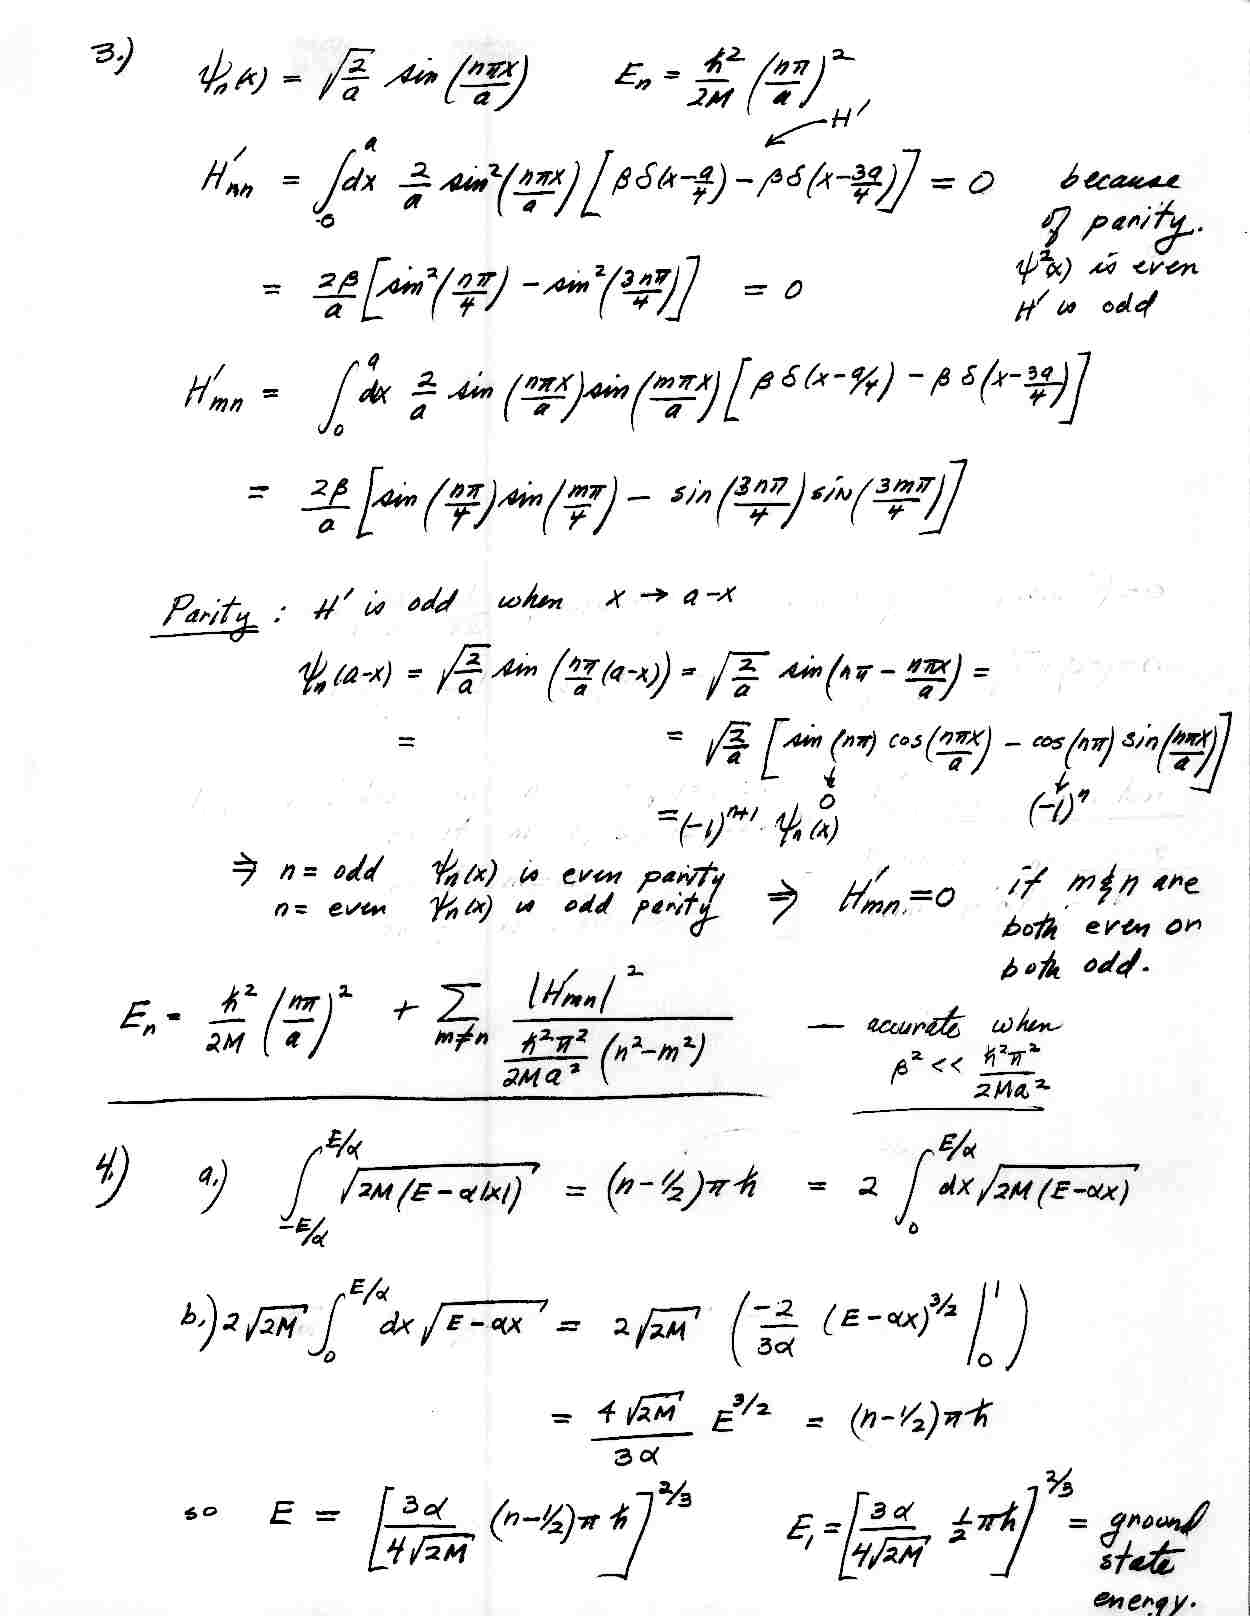 3.) ψn(x) = √(2/a) sin(nπx/a) En = ħ²/2M (nπ/a)²
← H′
H′nn = ∫₀ᵃ dx 2/a sin²(nπx/a) [βδ(x-a/4) - βδ(x-3a/4)] = 0 because
of parity.
= 2β/a [sin²(nπ/4) - sin²(3nπ/4)] = 0 ψ²(x) is even
H′ is odd
H′mn = ∫₀ᵃ dx 2/a sin(nπx/a) sin(mπx/a) [βδ(x-a/4) - βδ(x-3a/4)]
= 2β/a [sin(nπ/4) sin(mπ/4) - sin(3nπ/4) sin(3mπ/4)]
Parity: H′ is odd when x → a-x
ψn(a-x) = √(2/a) sin(nπ/a (a-x)) = √(2/a) sin(nπ - nπx/a) =
= = √(2/a) [sin(nπ) cos(nπx/a) - cos(nπ) sin(nπx/a)]
↓ ↓
0 (-1)ⁿ
= (-1)ⁿ⁺¹ ψn(x)
⇒ n = odd ψn(x) is even parity ⇒ H′mn = 0 if m & n are
n = even ψn(x) is odd parity both even or
both odd.
En = ħ²/2M (nπ/a)² + Σ m≠n |H′mn|² / (ħ²π²/2Ma² (n²-m²)) — accurate when
β² << ħ²π²/2Ma²
4.) a.) ∫_{-E/α}^{E/α} √(2M(E-α|x|)) = (n-1/2)πħ = 2 ∫₀^{E/α} dx √(2M(E-αx))
b.) 2√(2M) ∫₀^{E/α} dx √(E-αx) = 2√(2M) (-2/3α (E-αx)^{3/2} |₀¹)
= 4√(2M)/3α E^{3/2} = (n-1/2)πħ
so E = [3α/4√(2M) (n-1/2)πħ]^{2/3} E₁ = [3α/4√(2M) 1/2 πħ]^{2/3} = ground
state
energy.